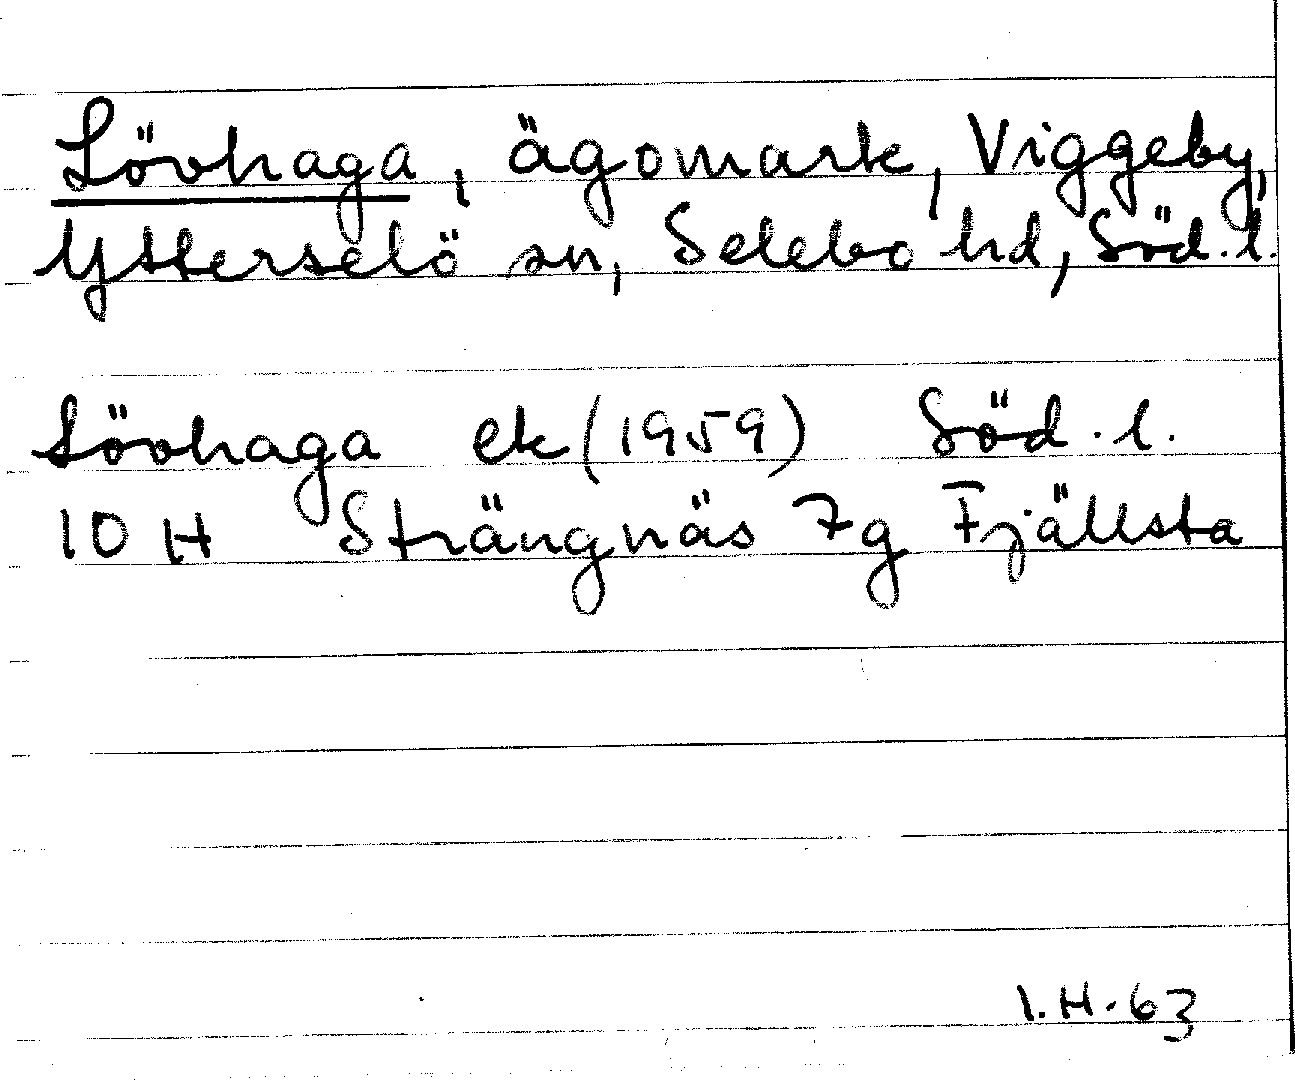 Lövhaga, ägomark, Viggeby,
Ytterselö sn, Selebo hd, Söd. l.
Lövhaga ek (1959) Söd. l.
10 H Strängnäs 7g Fjällsta
I.H. 63